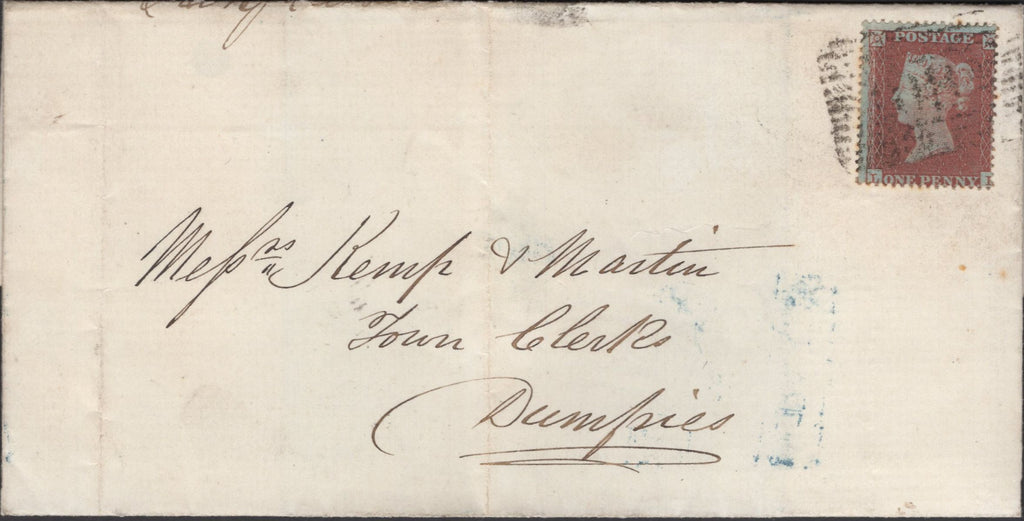 POSTAGE
ONE PENNY
Messrs Kemp & Martin
Town Clerks
Dumfries